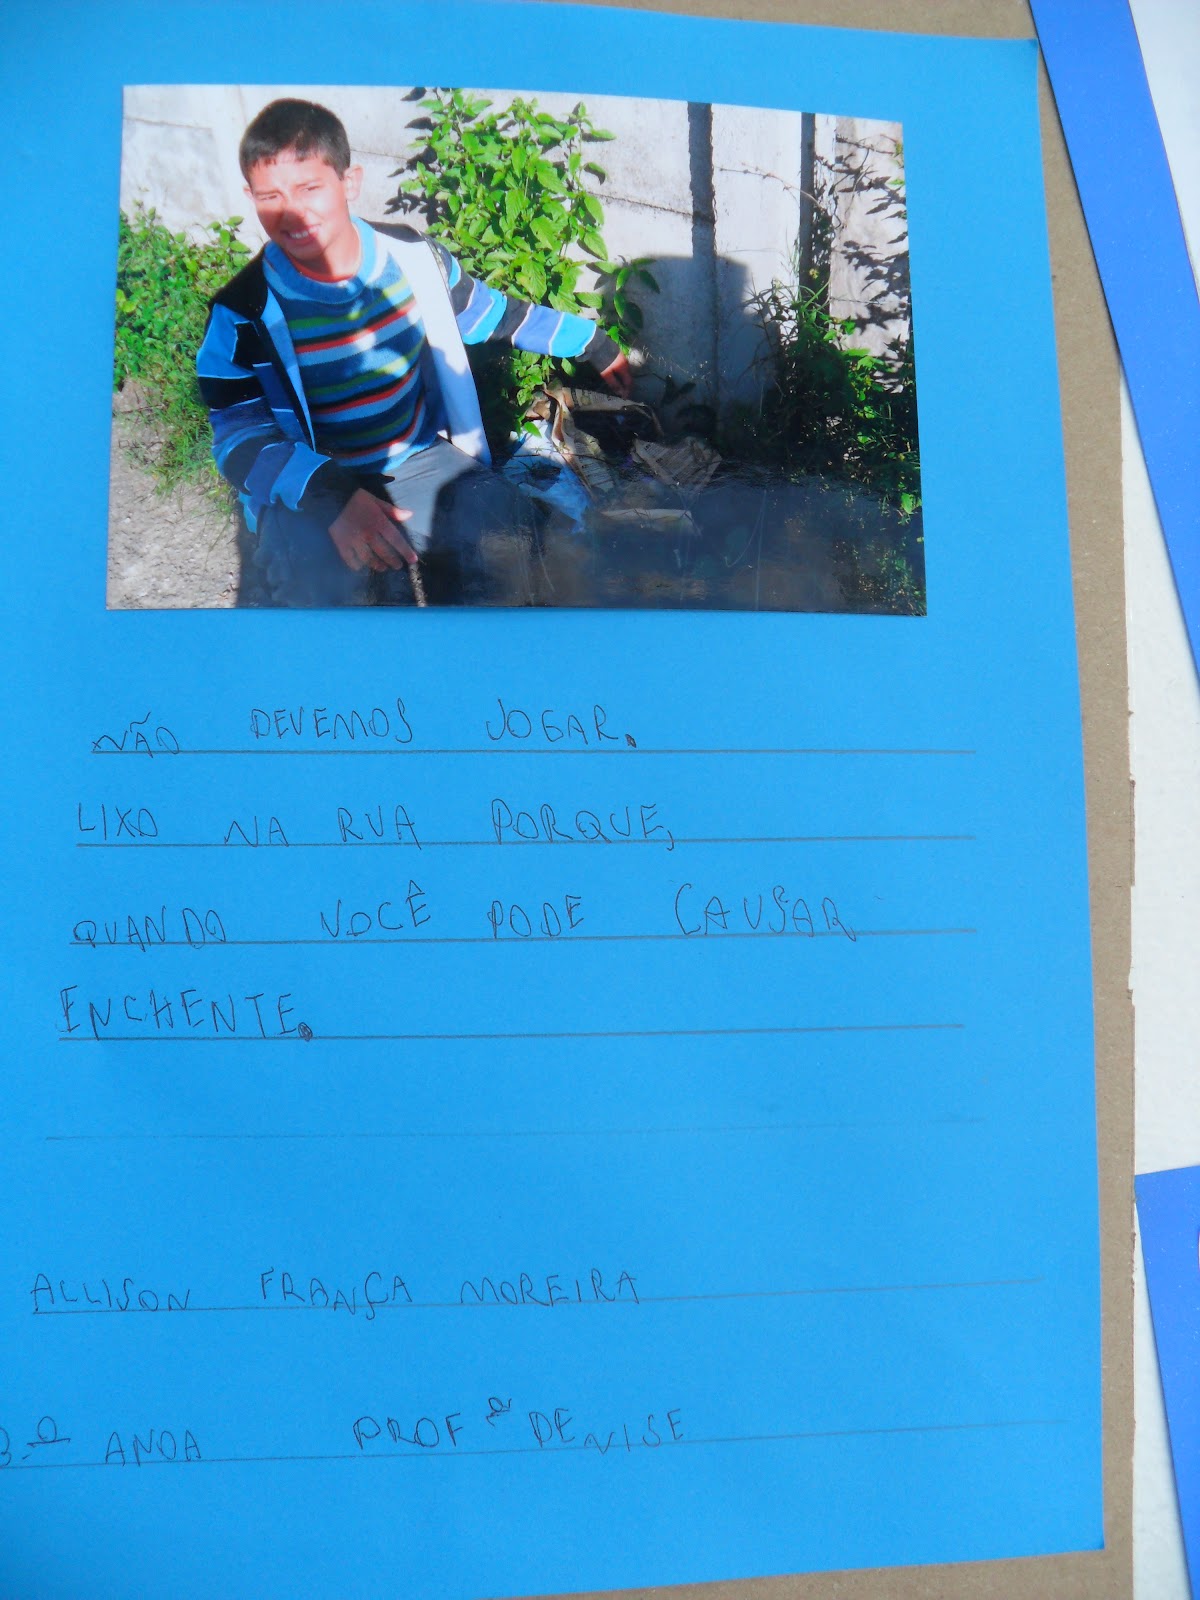 NÃO DEVEMOS JOGAR.
LIXO NA RUA PORQUE,
QUANDO VOCÊ PODE CAUSAR
ENCHENTE.
ALLISON FRANÇA MOREIRA
3º ANOA PROFª DENISE